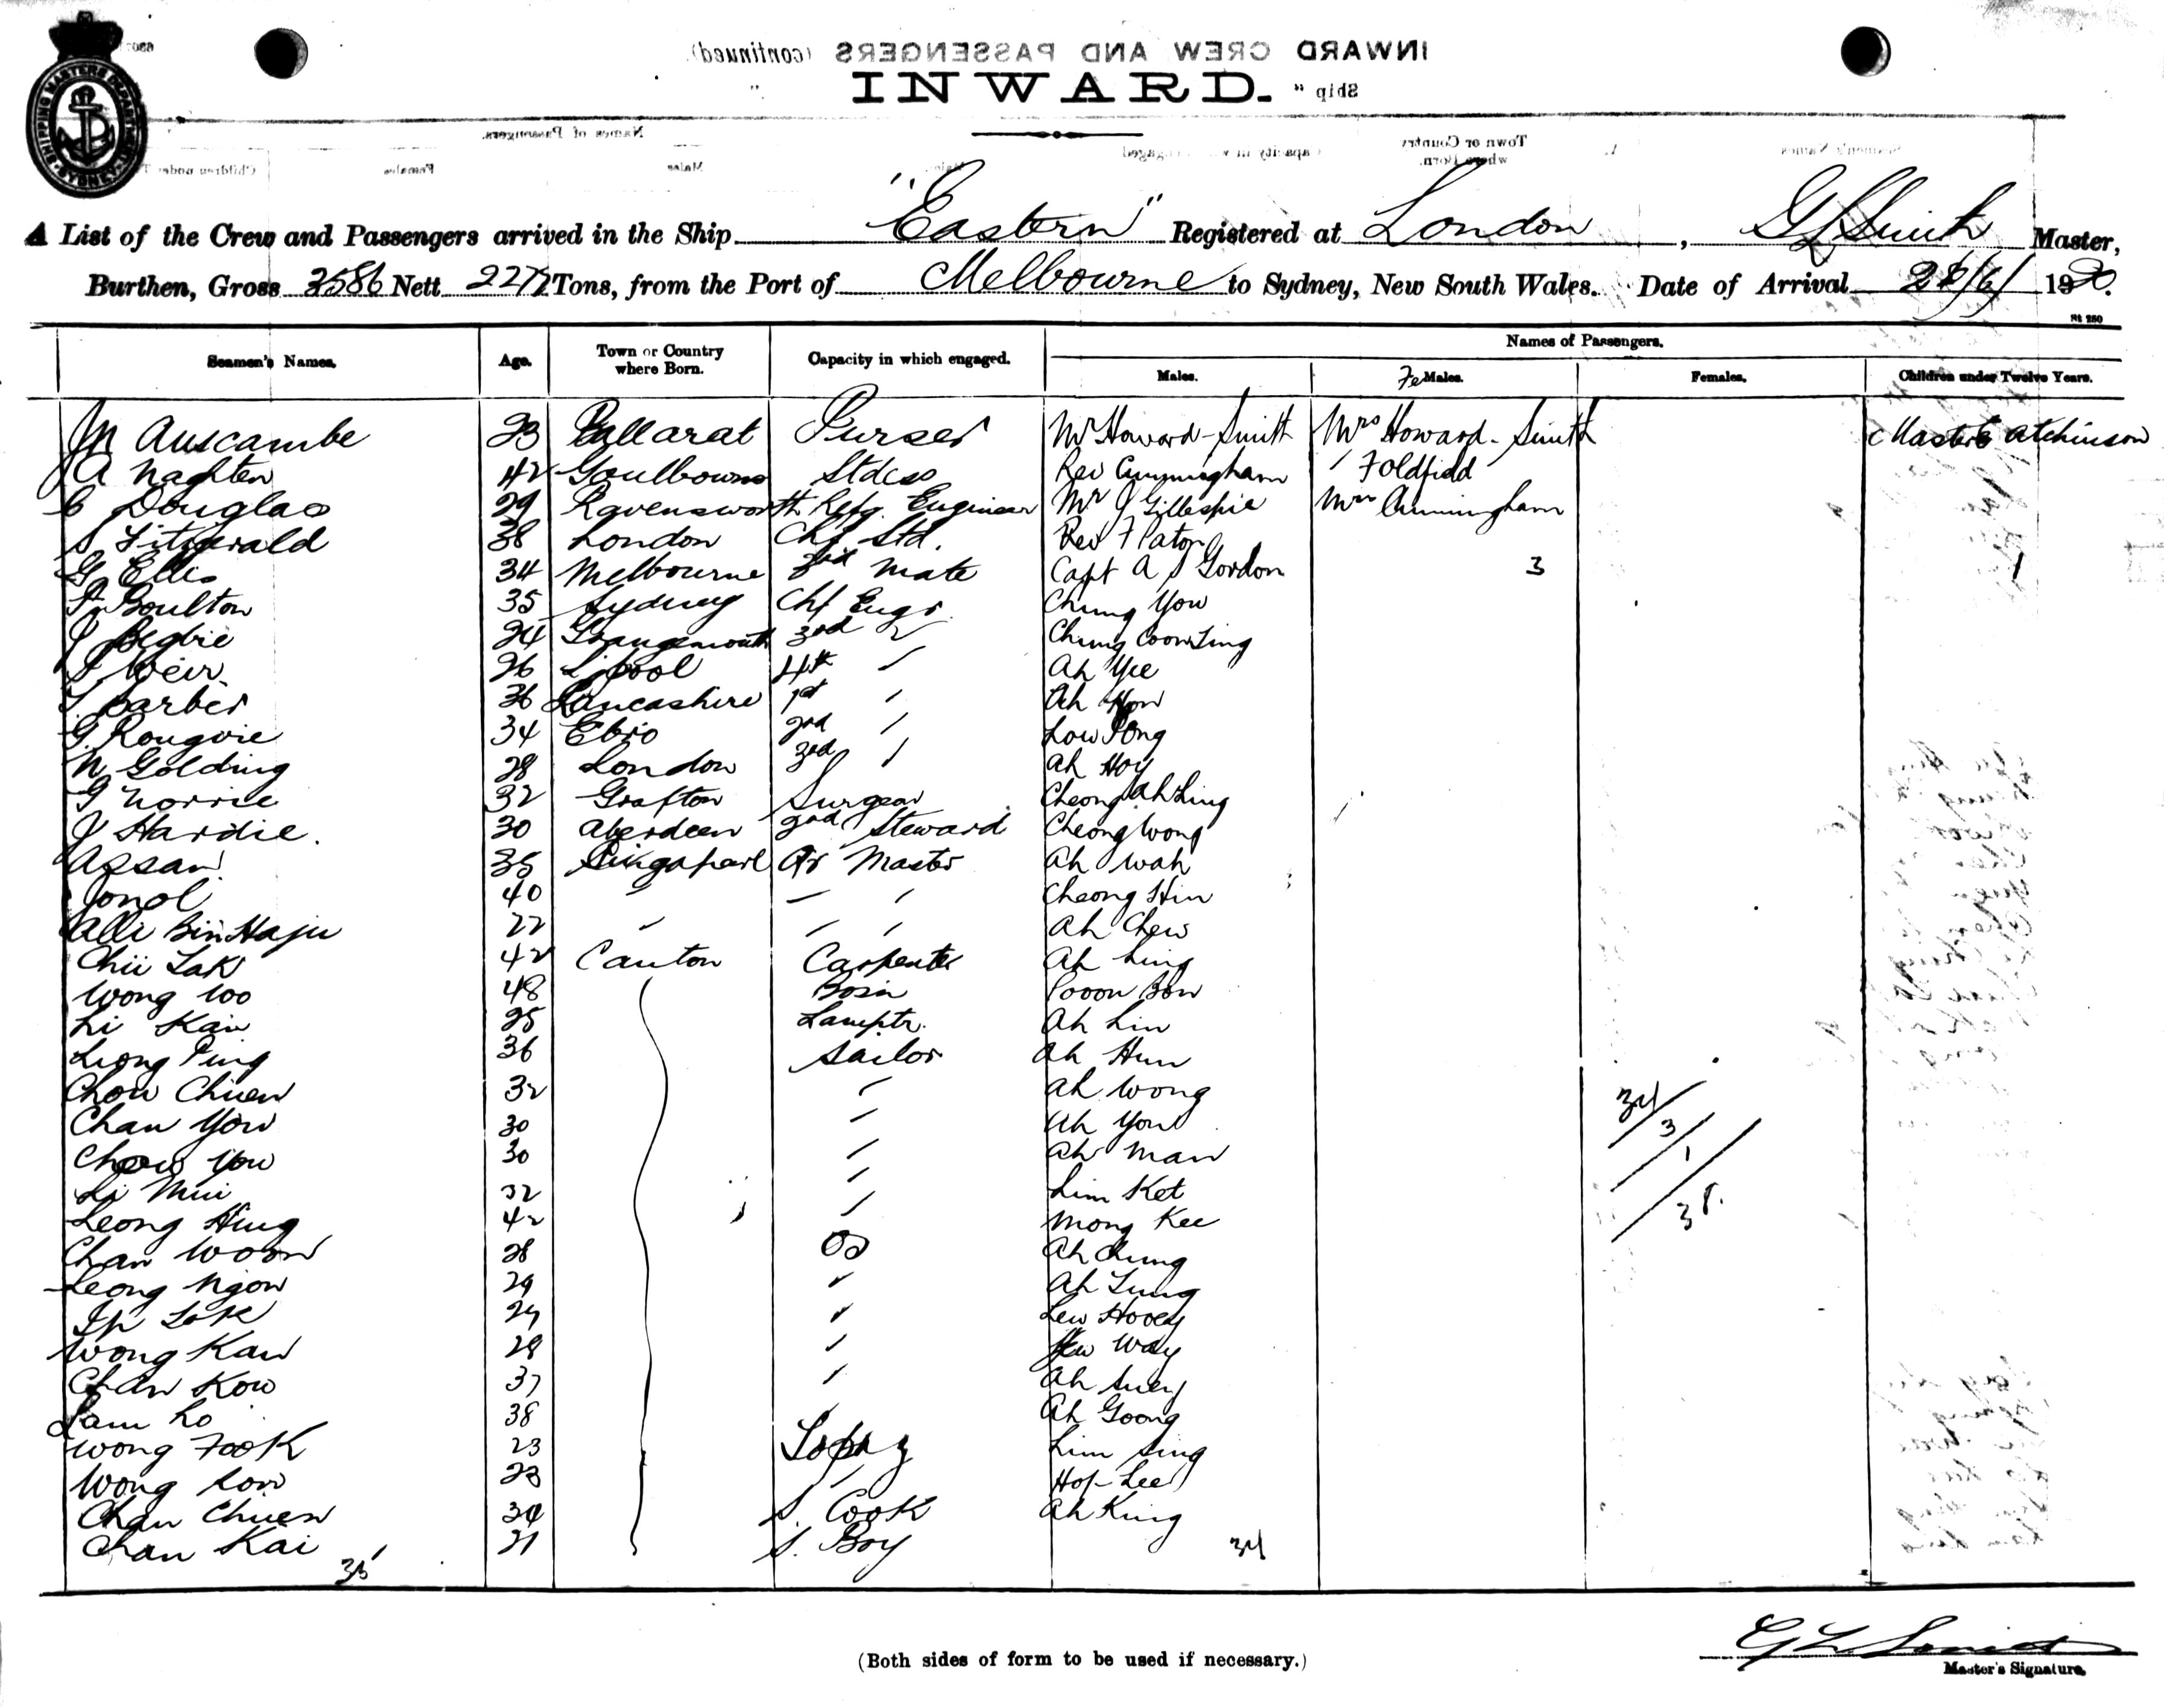 INWARD CREW AND PASSENGERS (continued).
INWARD.
Ship "
SHIPPING MASTERS DEPARTMENT SYDNEY
"Eastern" London G L Smith
A List of the Crew and Passengers arrived in the Ship Registered at , Master,
Burthen, Gross 3586 Nett 2272 Tons, from the Port of Melbourne to Sydney, New South Wales. Date of Arrival 28/6/ 1920.
St 250
Seamen's Names. Age. Town or Country where Born. Capacity in which engaged. Names of Passengers.
Males. Fe Males. Females. Children under Twelve Years.
M Auscambe 23 Ballarat Purser Mr Howard-Smith Mrs Howard-Smith Master Atchinson
A Naghten 42 Goulbourne Stdess Rev Cunningham " F Oldfield
C Douglas 29 Ravensworth Refg. Engineer Mr J Gillespie Mrs Cunningham
S Fitzgerald 38 London Chf Std. Rev F Paton
G Ellis 34 Melbourne 3rd Mate Capt A S Gordon 3 1
F Boulton 35 Sydney Chf Engr. Chung You
J Begbie 24 Grangemouth 2nd " Chung Coon Ling
S Weir 26 L'pool 4th " Ah Yee
T Barber 36 Lancashire 1st " Ah Hon
G. Rougvie 34 Ebro 2nd " Low Pong
N Golding 28 London 3rd " Ah Hoy
G Norrie 32 Grafton Surgeon Cheong Ah Ling
J Hardie. 30 Aberdeen 2nd Steward Cheong Wong
Assan 35 Singapore Qr Master Ah Wah
Jonol 40 " " " Cheong Hin
Alli Bin Haju 22 " " " Ah Chew
Chii Lak 42 Canton Carpenter Ah Ling
Wong Woo 48 Bosin Pooon Bow
Li Kan 25 Lamptr. Ah Lin
Leong Ping 36 Sailor Ah Hun
Chow Chuen 32 " Ah Wong
Chan Yow 30 " Ah You
Chow You 30 " Ah Man
Li Mui 32 " Lim Ket
Leong Hing 42 " Mong Kee
Chan Woon 28 OS Ah Chung
Leong Ngow 29 " Ah Lung
Ip Lok 29 " Lew Hooey
Wong Kan 28 " Yew Way
Chan Kow 37 " Ah Suey
Lam Lo 38 Ah Goong
Wong Fook 23 Lim Sing
Wong Low 23 " Hop Lee
Chan Chuen 34 S. Cook Ah King
Chan Kai 21 S. Boy
35 34
34
3
1
38.
G L Smith
Master's Signature.
(Both sides of form to be used if necessary.)